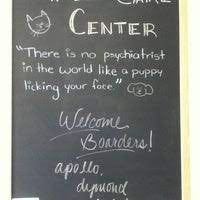 CENTER
"There is no psychiatrist
in the world like a puppy
licking your face."
Welcome
Boarders!
apollo,
dymond